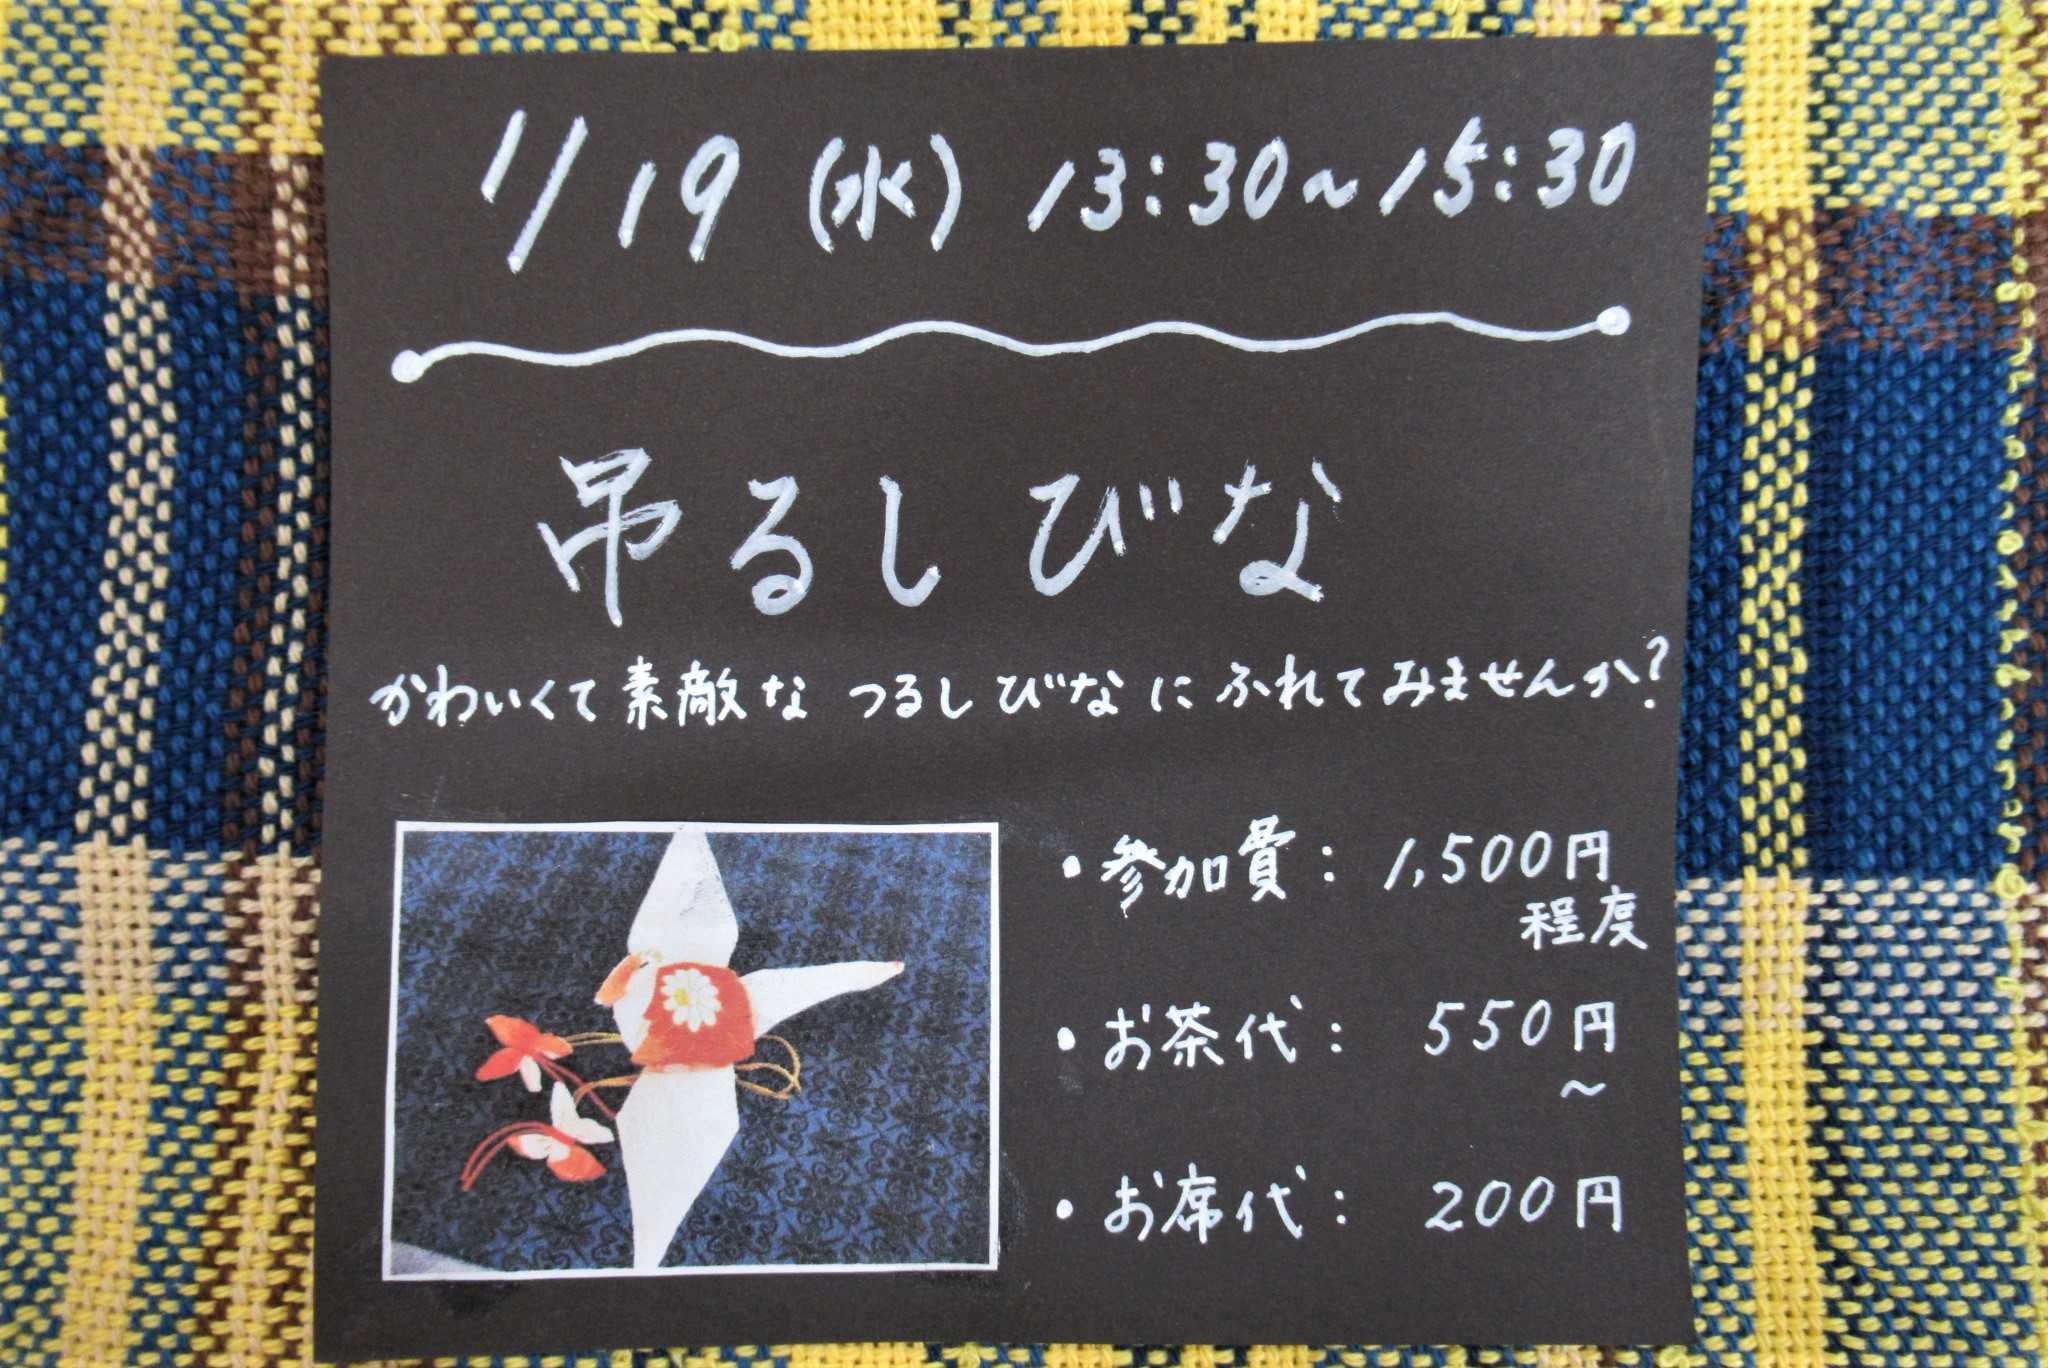 1/19(水) 13:30~15:30
吊るしびな
かわいくて素敵な つるしびなにふれてみませんか?
・参加費: 1,500円
程度
・お茶代: 550円
~
・お席代: 200円